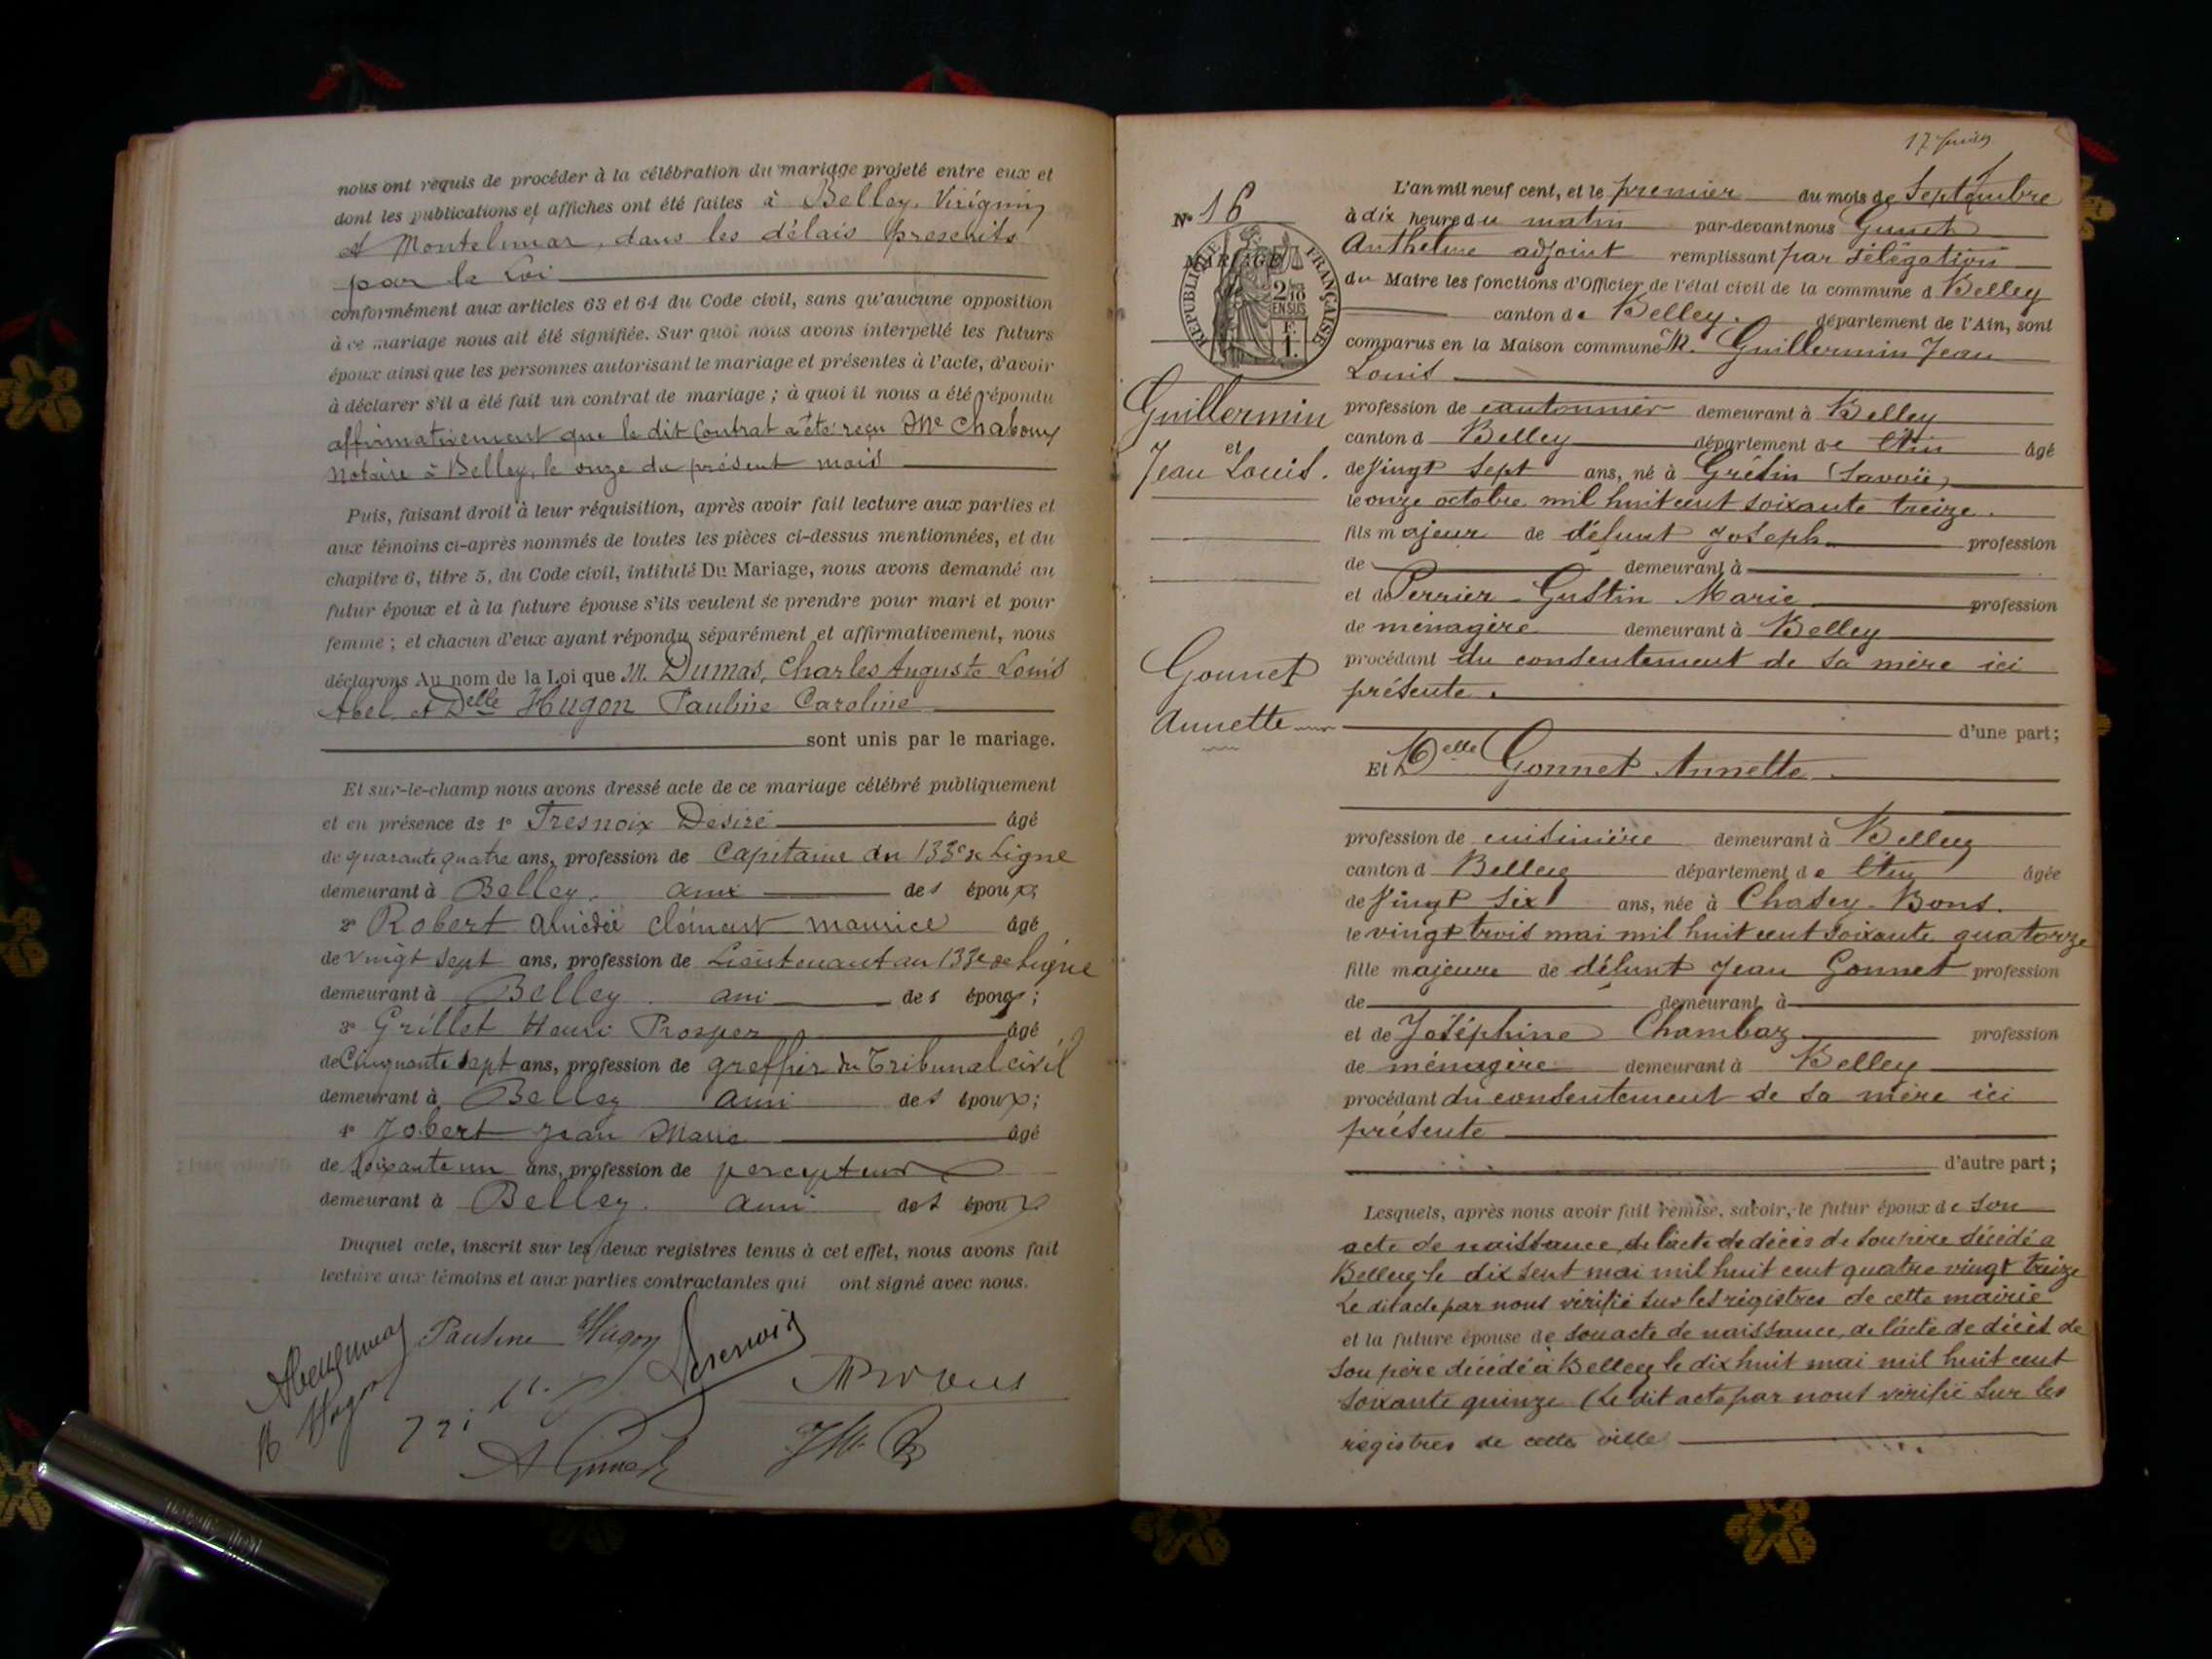 nous ont requis de procéder à la célébration du mariage projeté entre eux et
dont les publications et affiches ont été faites à Belley, Virignin
et Montelimar, dans les délais prescrits
par la Loi
conformément aux articles 63 et 64 du Code civil, sans qu'aucune opposition
à ce mariage nous ait été signifiée. Sur quoi nous avons interpellé les futurs
époux ainsi que les personnes autorisant le mariage et présentes à l'acte, d'avoir
à déclarer s'il a été fait un contrat de mariage ; à quoi il nous a été répondu
affirmativement que le dit Contrat a été reçu Me Chaboux
Notaire à Belley, le onze du présent mois
Puis, faisant droit à leur réquisition, après avoir fait lecture aux parties et
aux témoins ci-après nommés de toutes les pièces ci-dessus mentionnées, et du
chapitre 6, titre 5, du Code civil, intitulé Du Mariage, nous avons demandé au
futur époux et à la future épouse s'ils veulent se prendre pour mari et pour
femme ; et chacun d'eux ayant répondu séparément et affirmativement, nous
déclarons Au nom de la Loi que M. Dumas, Charles Auguste Louis
Abel et Delle Hugon Pauline Caroline
sont unis par le mariage.
Et sur-le-champ nous avons dressé acte de ce mariage célébré publiquement
et en présence de 1° Fresnoix Désiré âgé
de quarante quatre ans, profession de Capitaine du 133e de Ligne
demeurant à Belley. ami des époux;
2° Robert Amédée Clément Maurice âgé
de vingt sept ans, profession de Lieutenant au 133e de Ligne
demeurant à Belley. ami des époux;
3° Grillet Henri Prosper âgé
de Cinquante sept ans, profession de greffier du Tribunal civil
demeurant à Belley ami des époux;
4° Jobert Jean Marie âgé
de soixante un ans, profession de percepteur
demeurant à Belley. ami des époux
Duquel acte, inscrit sur les deux registres tenus à cet effet, nous avons fait
lecture aux témoins et aux parties contractantes qui ont signé avec nous.
Pauline Hugon
17 Juin
N° 16
MARIAGE
RÉPUBLIQUE FRANÇAISE
2/10 EN SUS
F. 1.
Guillermin
et
Jean Louis.
Gonnet
Annette
L'an mil neuf cent, et le premier du mois de Septembre
à dix heures du matin par-devant nous Gunet
Anthelme adjoint remplissant par délégation
du Maire les fonctions d'Officier de l'état civil de la commune d Belley
canton de Belley. département de l'Ain, sont
comparus en la Maison commune M. Guillermin Jean
Louis
profession de cantonnier demeurant à Belley
canton d Belley département de l'Ain âgé
de vingt sept ans, né à Grésin (Savoie)
le onze octobre mil huit cent soixante treize.
fils majeur de défunt Joseph profession
de demeurant à
et de Perrier-Gustin Marie profession
de ménagère demeurant à Belley
procédant du consentement de sa mère ici
présente.
d'une part;
Et Delle Gonnet Annette
profession de cuisinière demeurant à Belley
canton d Belley département de l'Ain âgée
de vingt six ans, née à Chasey-Bons.
le vingt trois mai mil huit cent soixante quatorze
fille majeure de défunt Jean Gonnet profession
de demeurant à
et de Joséphine Chambaz profession
de ménagère demeurant à Belley
procédant du consentement de sa mère ici
présente
d'autre part;
Lesquels, après nous avoir fait remise, savoir, le futur époux de son
acte de naissance, de l'acte de décès de son père décédé a
Belley le dix sept mai mil huit cent quatre vingt treize
Le dit acte par nous vérifié sur les registres de cette mairie
et la future épouse de son acte de naissance, de l'acte de décès de
son père décédé à Belley le dix huit mai mil huit cent
soixante quinze (Le dit acte par nous vérifié sur les
régistres de cette ville